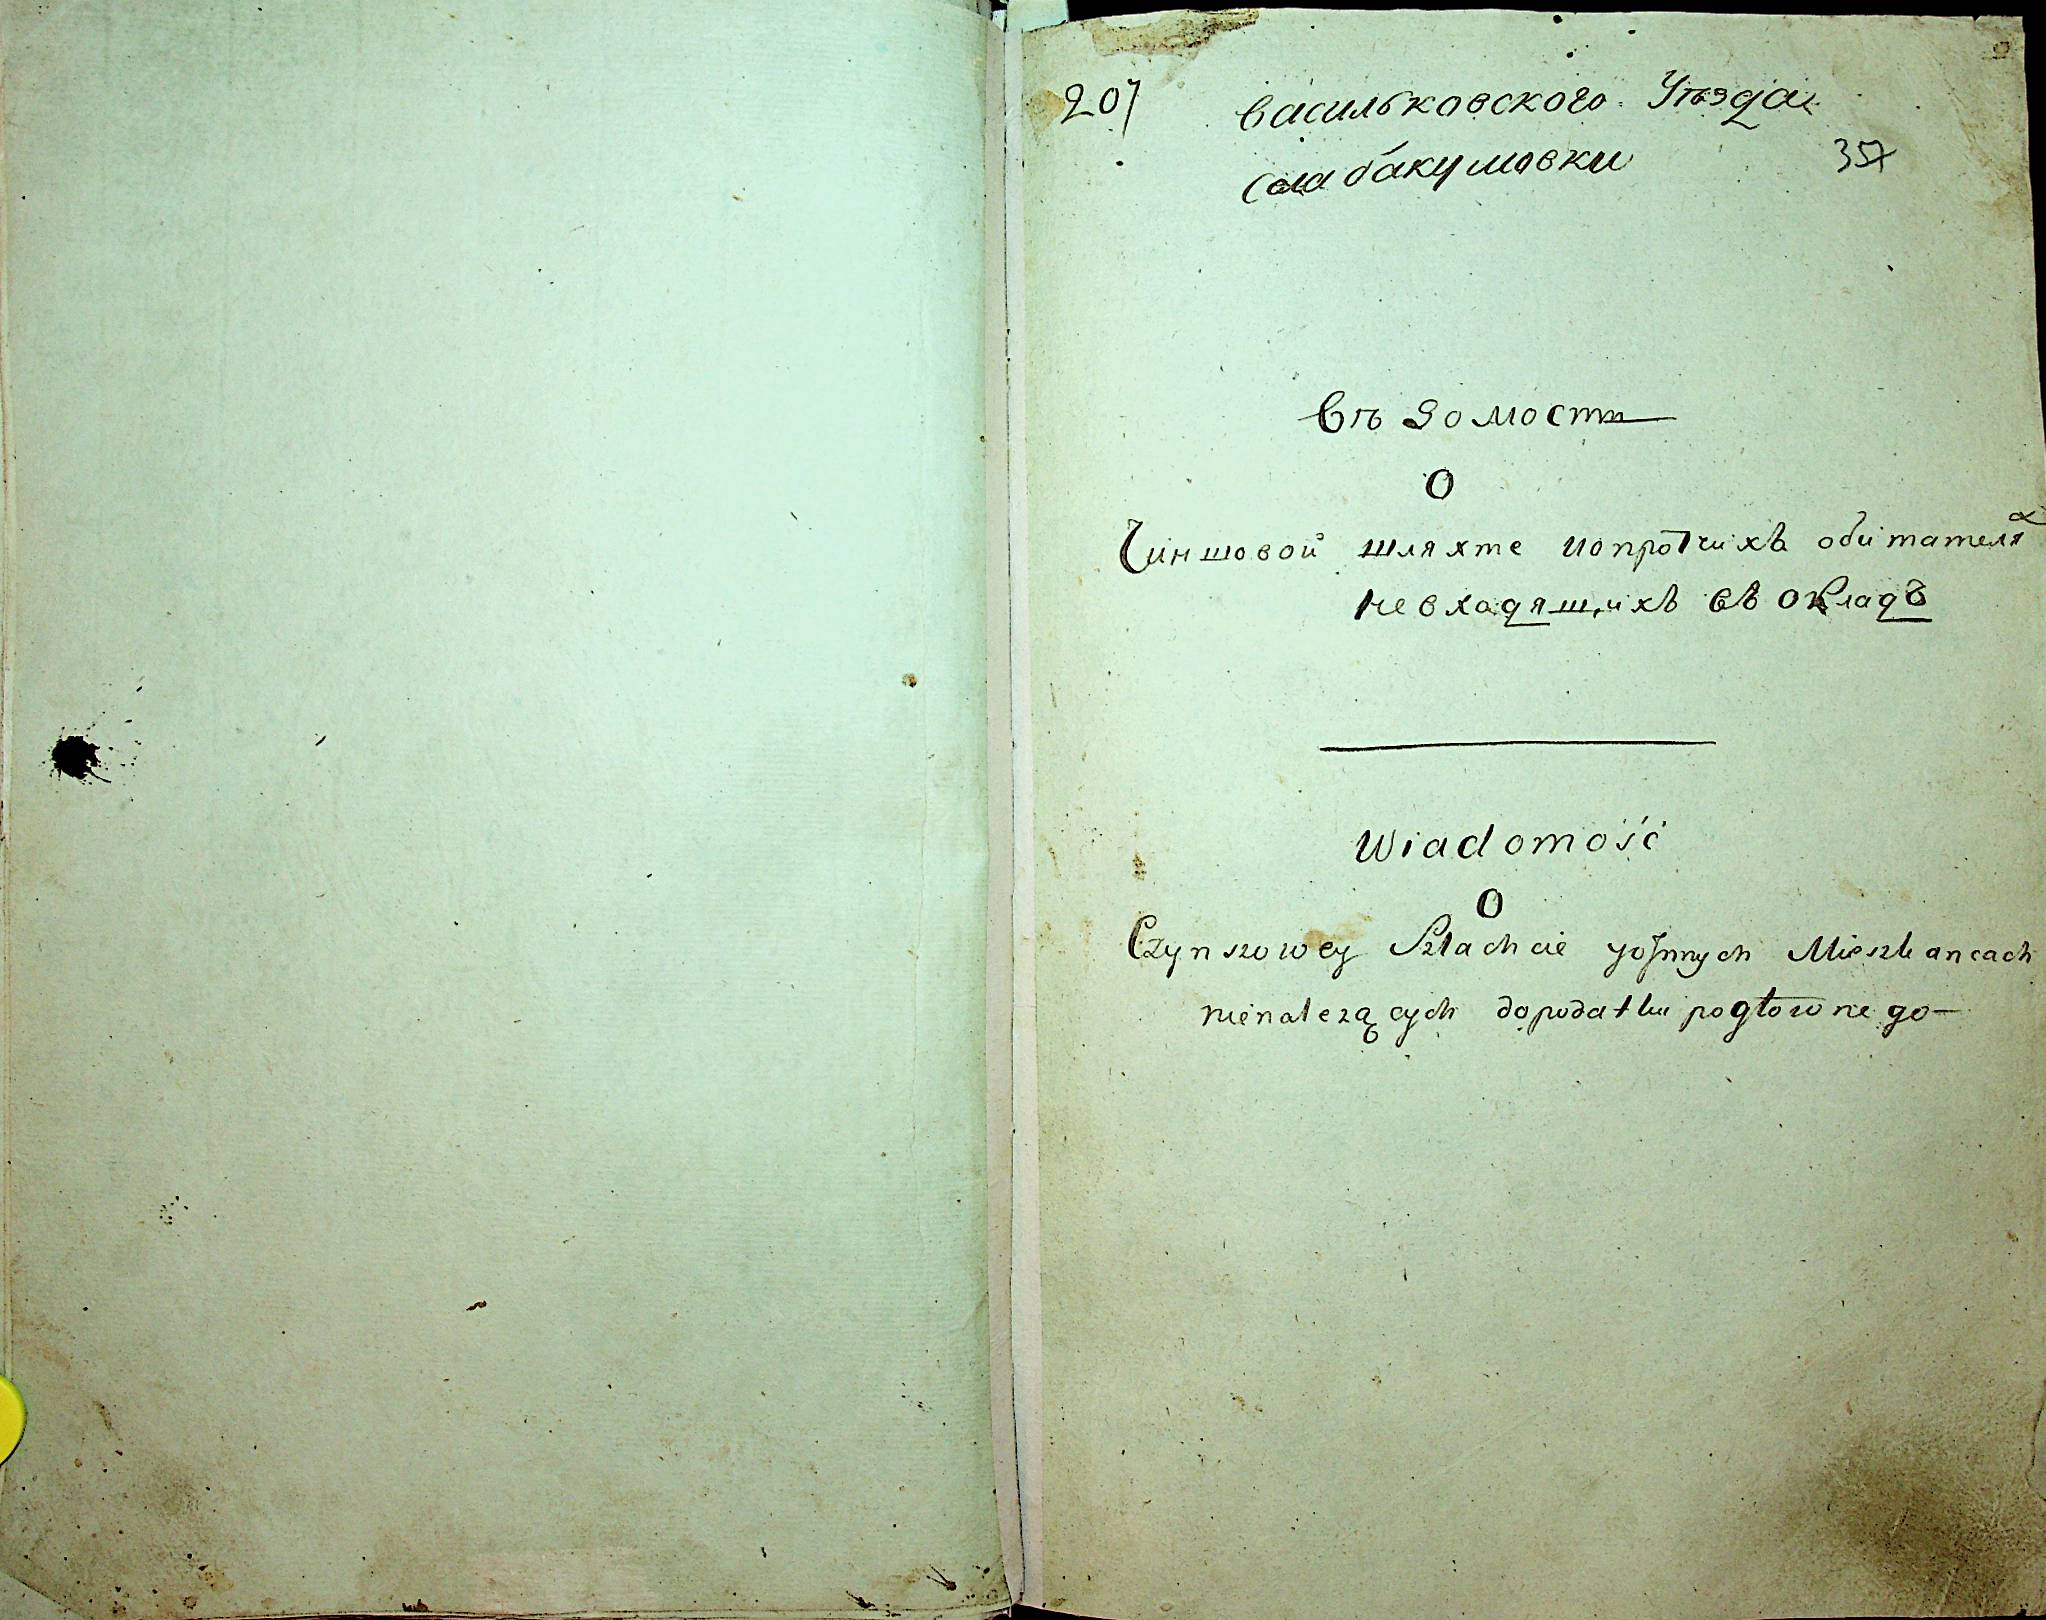 207
васильковского Уѣзда
села бакумовки
357
Вѣдомость
О
Чиншовой шляхте ипротчихъ обитателях
невходящихъ въ окладъ
Wiadomość
O
Czynszowey Szlachcie yoJnnych Mieszkancach
nienalezących dopodatku pogłownego